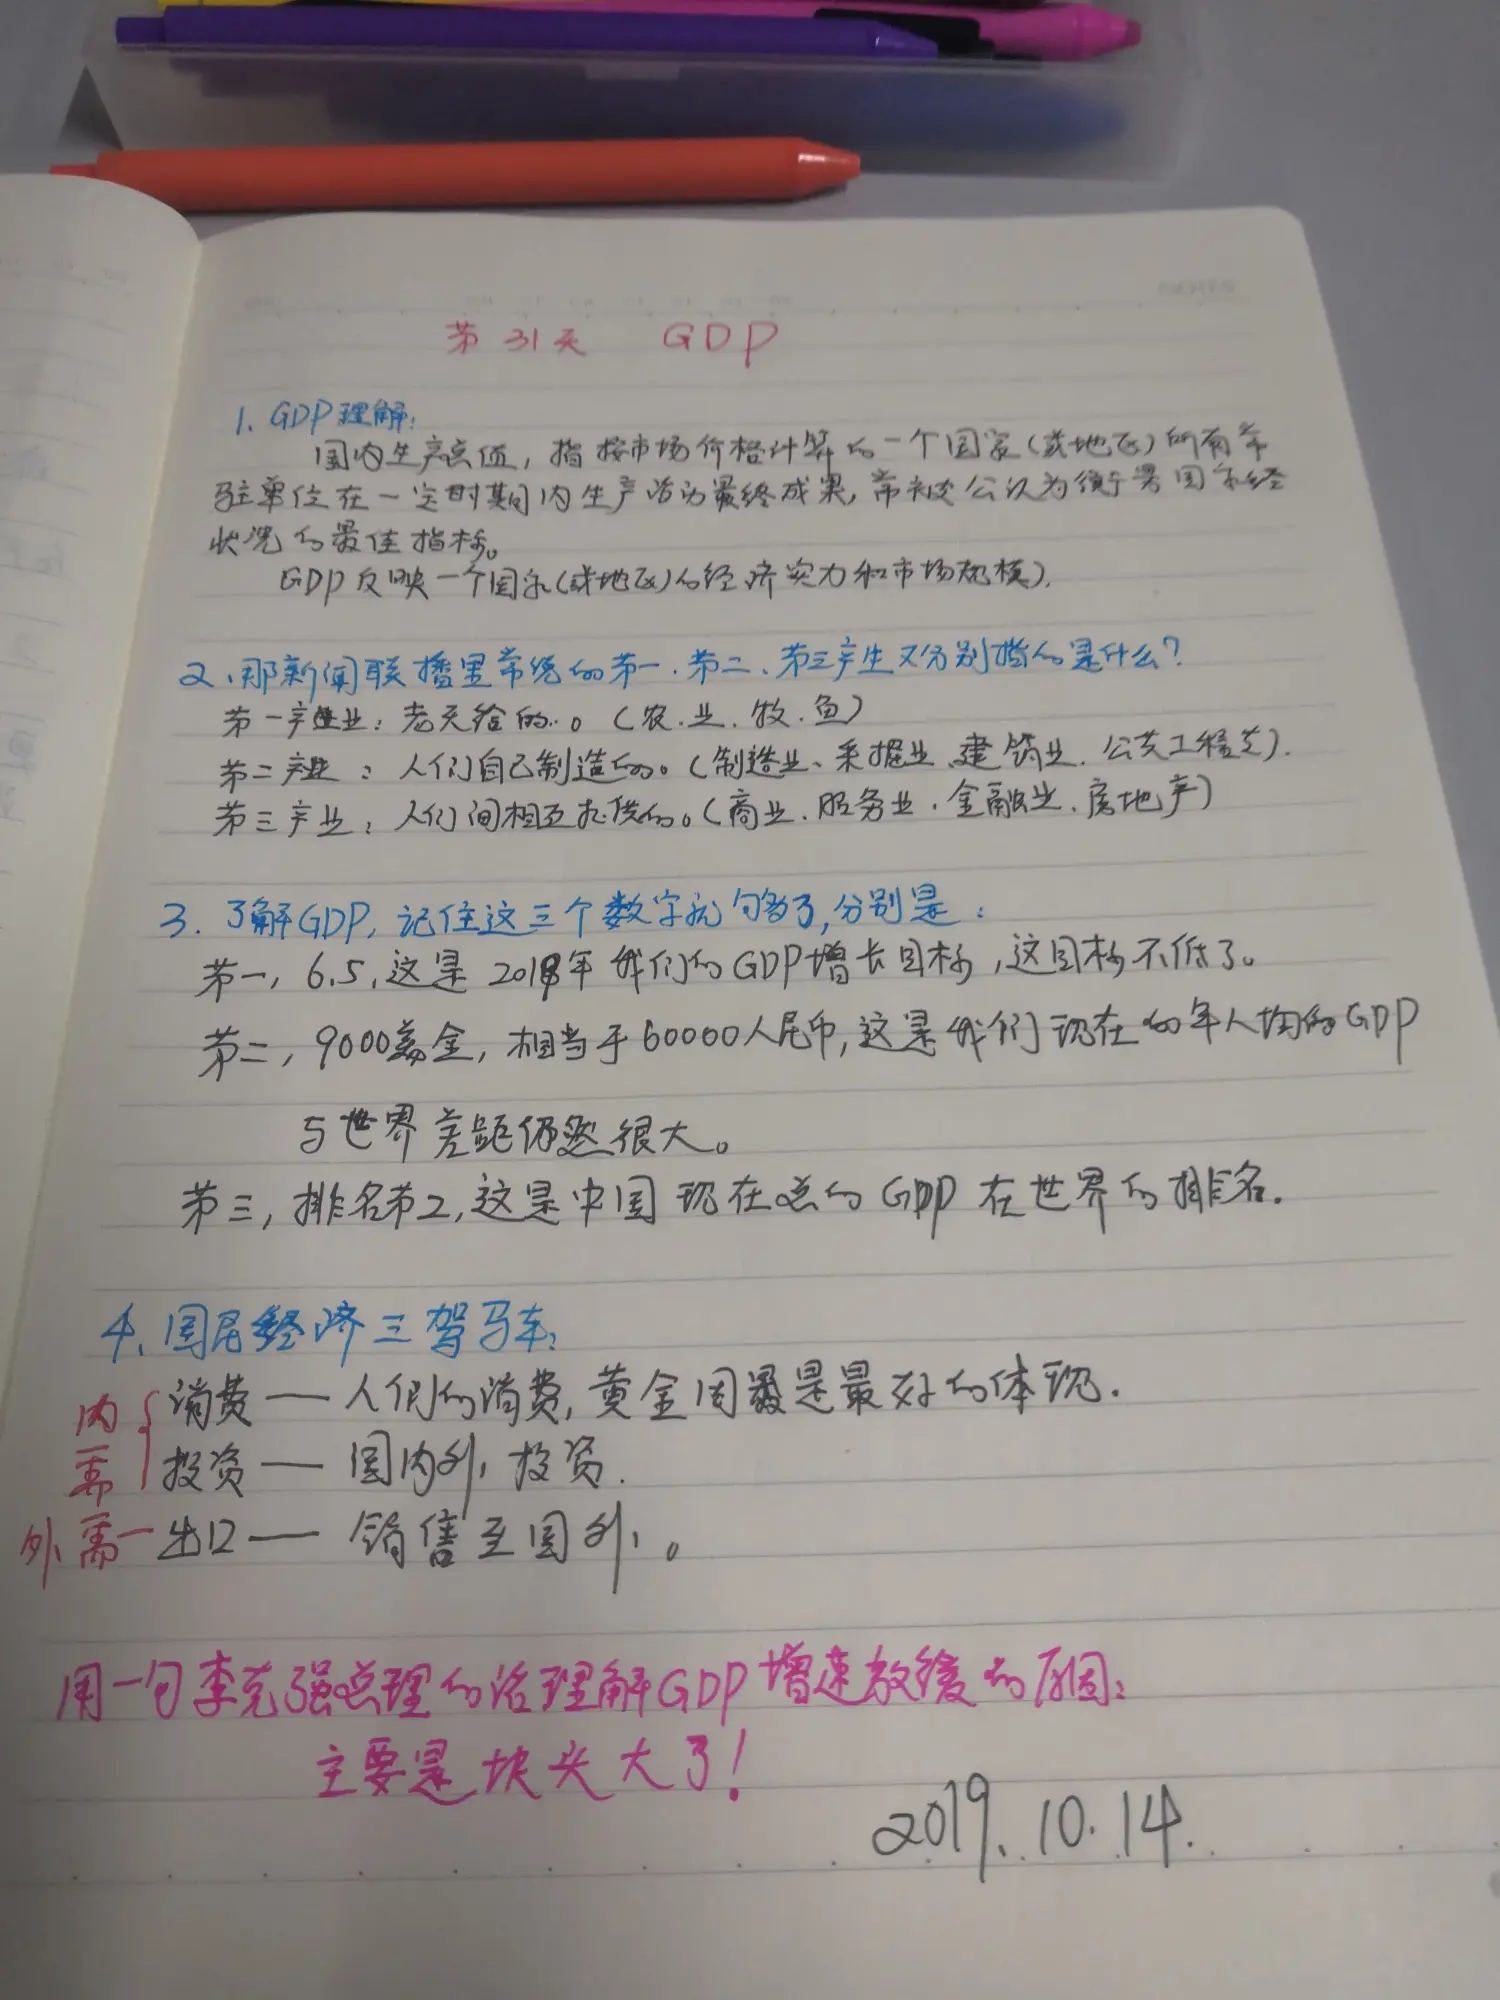 第31天 GDP
1. GDP理解:
国内生产总值，指按市场价格计算的一个国家(或地区)所有常
驻单位在一定时期内生产活动最终成果，常被公认为衡量国家经
状况的最佳指标。
GDP反映一个国家(或地区)的经济实力和市场规模).
2、那新闻联播里常说的第一、第二、第三产生又分别指的是什么?
第一产业: 老天给的.。(农.业.牧.鱼)
第二产业: 人们自己制造的。(制造业、采掘业、建筑业.公共工程等).
第三产业: 人们间相互提供的。(商业.服务业.金融业.房地产)
3. 了解GDP, 记住这三个数字就够了,分别是:
第一, 6.5,这是2018年我们的GDP增长目标,这目标不低了。
第二, 9000美金, 相当于60000人民币,这是我们现在的年人均的GDP
与世界差距仍然很大。
第三, 排名第2,这是中国现在总的GDP在世界的排名.
4、国民经济三驾马车:
内需 { 消费 — 人们的消费, 黄金周是最好的体现.
投资 — 国内外投资.
外需—出口 — 销售至国外。
用一句李克强总理的话理解GDP增速放缓的原因:
主要是块头大了!
2019.10.14.